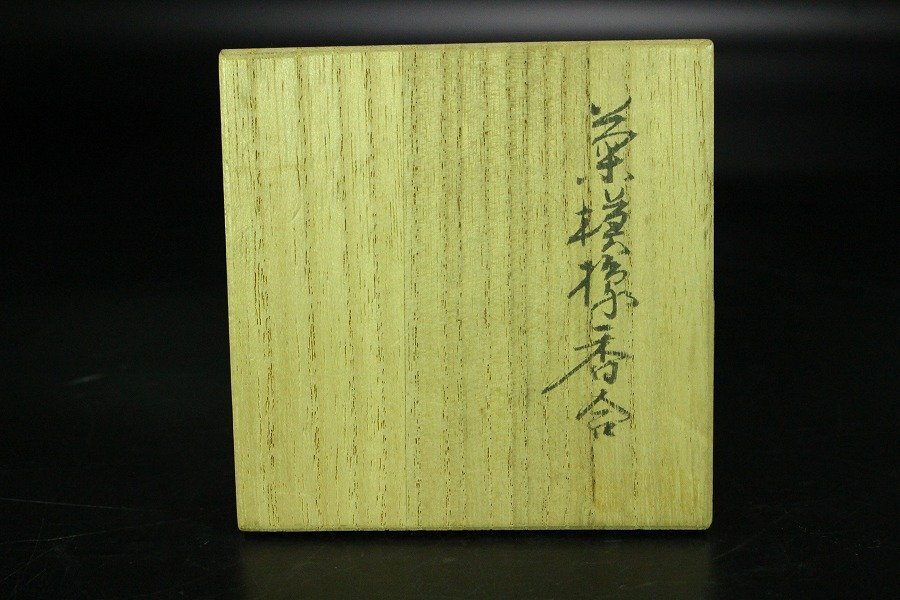 菊模様香合